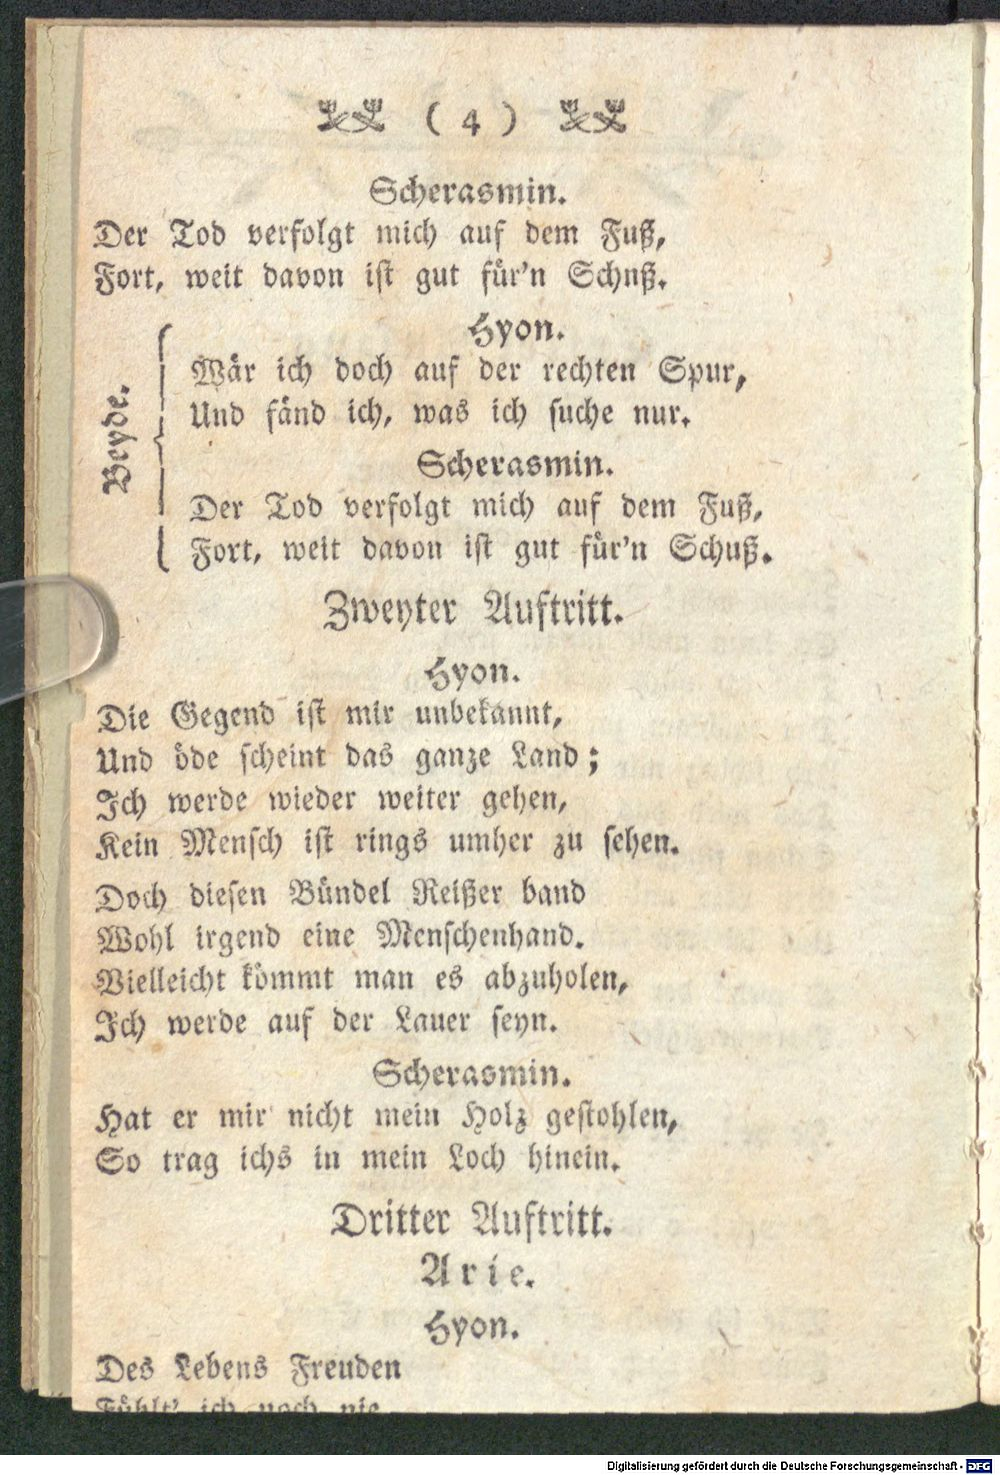 ( 4 )
Scherasmin.
Der Tod verfolgt mich auf dem Fuß,
Fort, weit davon ist gut für'n Schuß.
Hyon.
Beyde.
Wär ich doch auf der rechten Spur,
Und fänd ich, was ich suche nur.
Scherasmin.
Der Tod verfolgt mich auf dem Fuß,
Fort, weit davon ist gut für'n Schuß.
Zweyter Auftritt.
Hyon.
Die Gegend ist mir unbekannt,
Und öde scheint das ganze Land;
Ich werde wieder weiter gehen,
Kein Mensch ist rings umher zu sehen.
Doch diesen Bündel Reißer band
Wohl irgend eine Menschenhand.
Vielleicht kömmt man es abzuholen,
Ich werde auf der Lauer seyn.
Scherasmin.
Hat er mir nicht mein Holz gestohlen,
So trag ichs in mein Loch hinein.
Dritter Auftritt.
Arie.
Hyon.
Des Lebens Freuden
Fühlt' ich noch nie
Digitalisierung gefördert durch die Deutsche Forschungsgemeinschaft - DFG